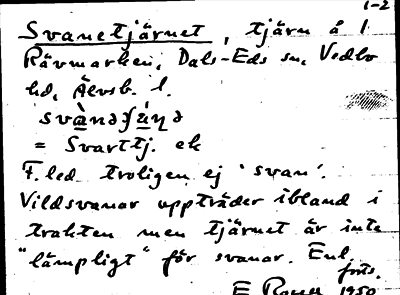 1-2
Svanetjärnet, tjärn å l
Rävmarken, Dals-Eds sn, Vedbo
hd, Älvsb. l.
svànəʃä́ṇə
= Svarttj. ek
F. led troligen ej 'svan'.
Vildsvanar uppträder ibland i
trakten men tjärnet är inte
"lämpligt" för svanar. Enl.
forts.
E 1950